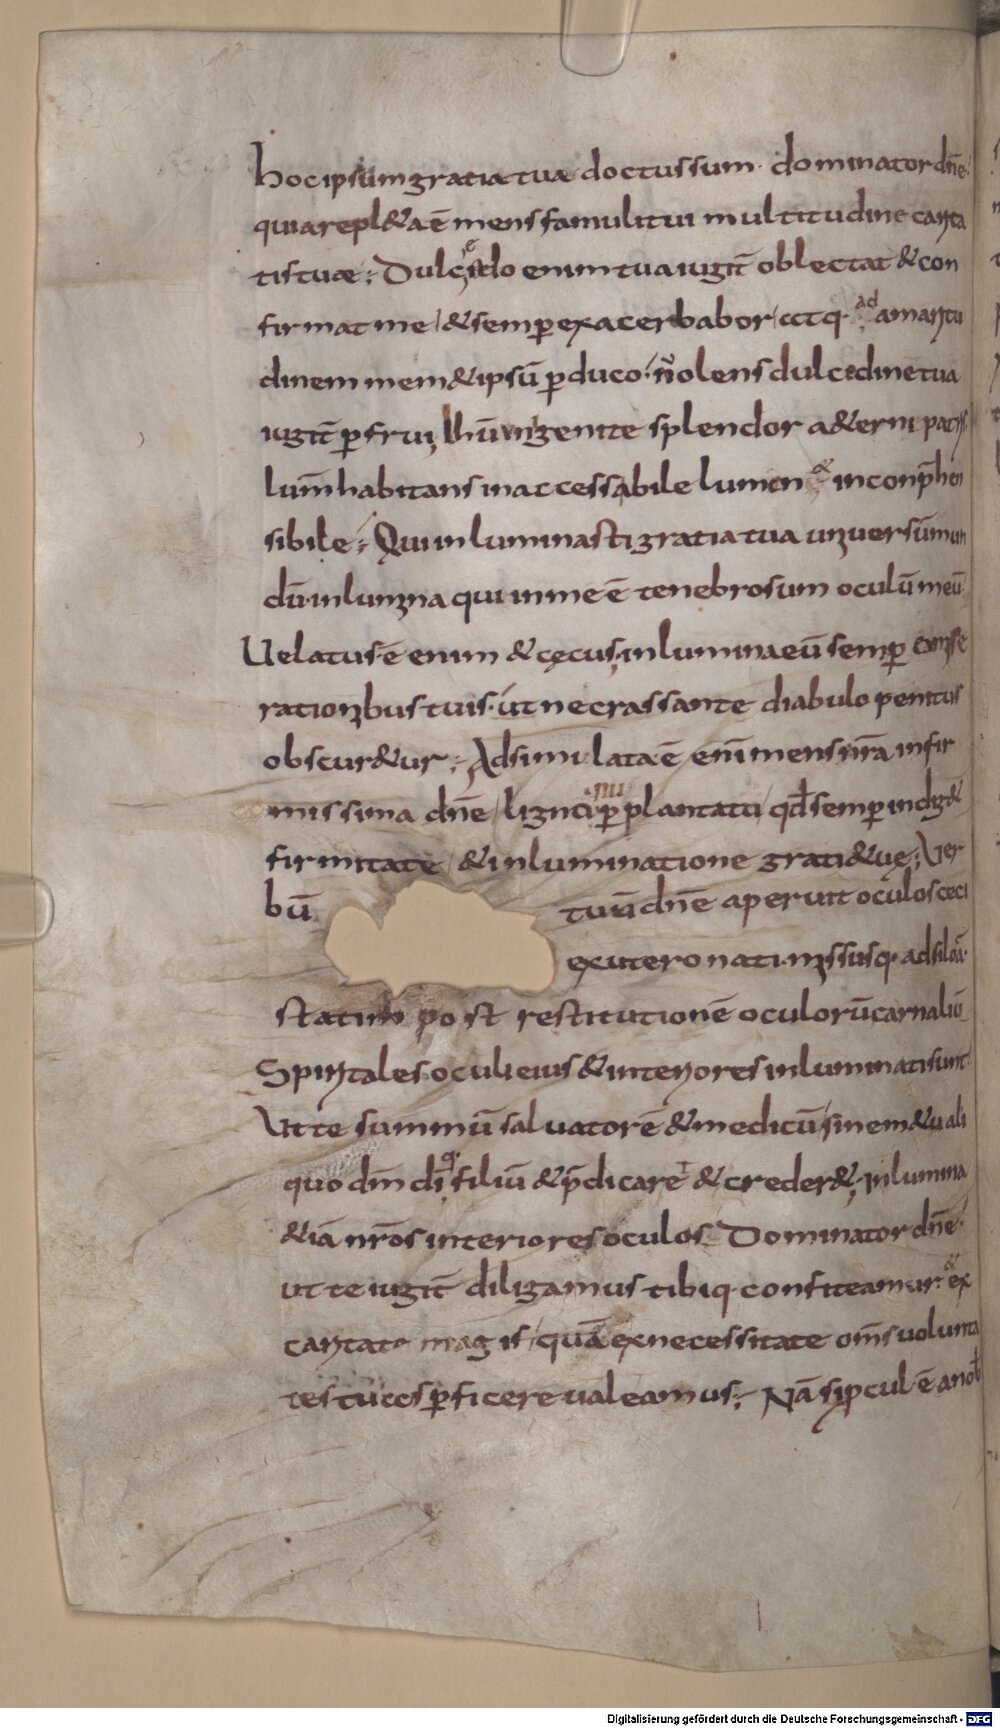 hoc ipsum gratia tua doctus sum · dominator dn̄e ·
quia repl&a ē mens famuli tui multitudine carita
tis tuae ; Dulcitdo enim tua iugit̄ oblectat & con
firmat me / & semp̲ exacerbabor / atq · ad amaritu
dinem mem& ipsū p̲duco · n̄ olens dulcedine tua
iugit̄ p̲frui ; unigenite splendor a&erni patris
lum̄ habitans inaccessabile lumen & inconp̄hen
sibile ; Qui inluminasti gratia tua uniuersū mun
dū · inlumina qui in me ē tenebrosum oculū meū
Uelatus · ē enim & cęcus · inlumina eū semp̲ ex mise
rationibus tuis · ut ne crassante diabulo penitus
obscur&ur ; Adsimilata ē eni mens nr̄a infir
missima dn̄e / ligno p̲plantatu / qd̄ semp̲ indig&
firmitate / & inluminatione grati&uę ; Ver
bū tuū dn̄e aperuit oculos ceci
ex utero nati · missusq · ad siloā ·
statim post restitutionē oculorū carnaliū
Spiritales oculi eius & interiores inluminati sunt ·
Ut te summū saluatorē & medicū / sin em& u ali
quo dm̄ di q · filiū & p̄dicare & creder& ; inlumina
&iā nr̄os interiores oculos Dominator dn̄e ·
ut te iugit̄ diligamus tibiq · confiteamur · & ex
caritate magis / quā ex necessitate om̄s uolunta
tes tuas p̲ficere ualeamus ; Nā si p̲cul · ē a nob̄
Digitalisierung gefördert durch die Deutsche Forschungsgemeinschaft - DFG